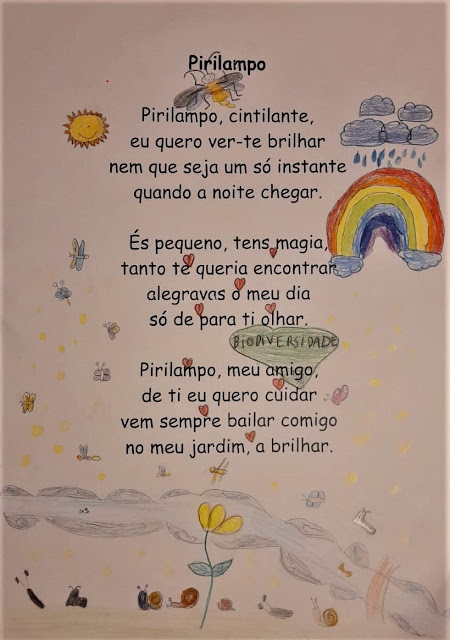 Pirilampo
Pirilampo, cintilante,
eu quero ver-te brilhar
nem que seja um só instante
quando a noite chegar.
És pequeno, tens magia,
tanto te queria encontrar
alegravas o meu dia
só de para ti olhar.
BiODiVERSiDADE
Pirilampo, meu amigo,
de ti eu quero cuidar
vem sempre bailar comigo
no meu jardim, a brilhar.